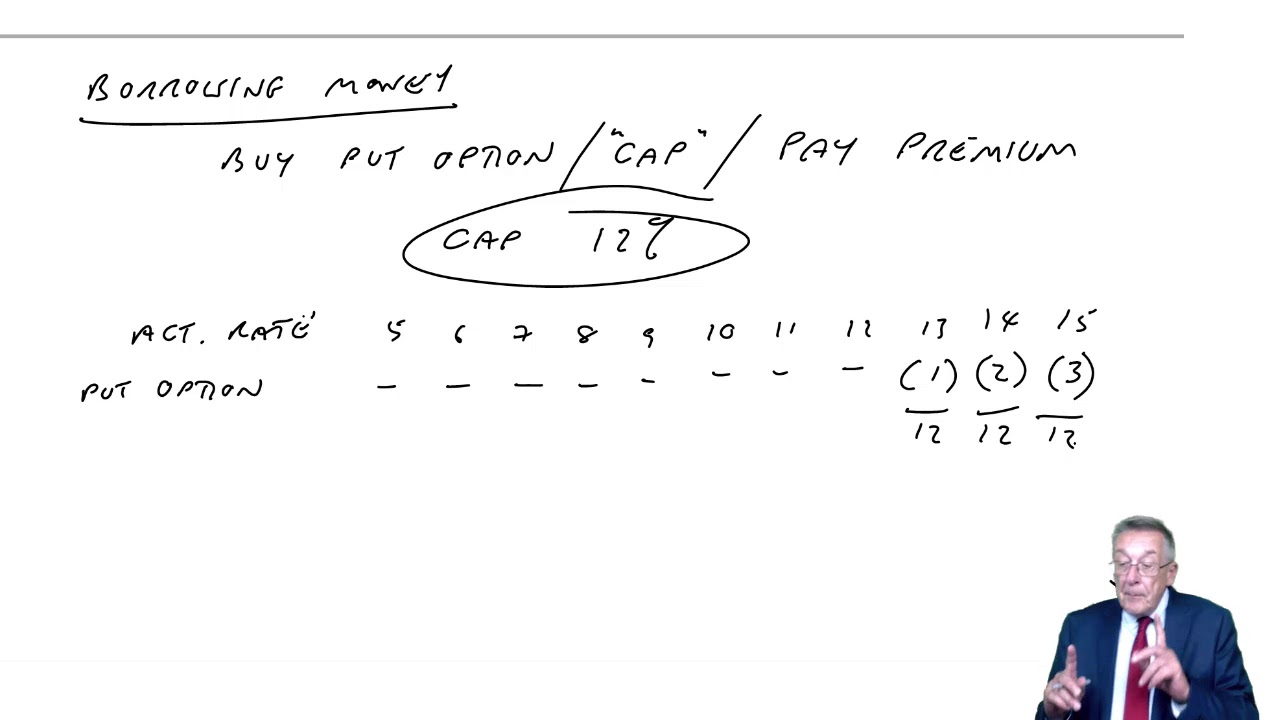 BORROWING MONEY
BUY PUT OPTION / "CAP" / PAY PREMIUM
CAP 12%
ACT. RATE 5 6 7 8 9 10 11 12 13 14 15
PUT OPTION - - - - - - - - (1) (2) (3)
12 12 12